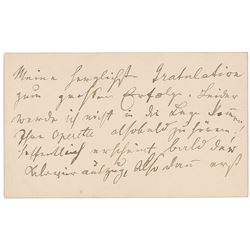 Meine herzlichste Gratulation
zum großen Erfolge. Leider
werde ich nicht in die Lage kommen
Ihre Operette alsobald zu hören.
Hoffentlich erscheint bald der
Klavierauszug. Also dann erst